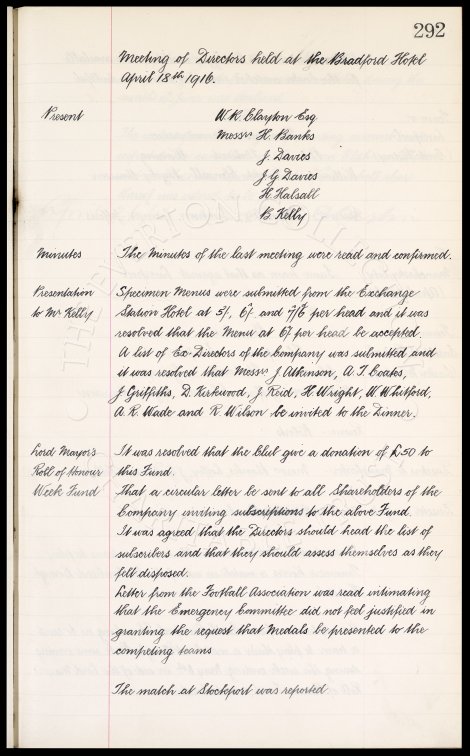 292
Meeting of Directors held at the Bradford Hotel
April 18th 1916.
Present
W.R. Clayton Esq
Messrs H. Banks
J. Davies
J.G Davies
H. Halsall
B. Kelly
Minutes The Minutes of the last meeting were read and confirmed.
Presentation Specimen Menus were submitted from the Exchange
to Mr Kelly Station Hotel at 5/, 6/ and 7/6 per head and it was
resolved that the Menu at 6/ per head be accepted.
A list of Ex-Directors of the Company was submitted and
it was resolved that Messrs J Atkinson, A.T Coates,
J Griffiths, D. Kirkwood, J Reid, H Wright, W. Whitford,
A.R. Wade and R. Wilson be invited to the Dinner.
Lord Mayor's It was resolved that the Club give a donation of £50 to
Roll of Honour this Fund.
Week Fund That a circular letter be sent to all Shareholders of the
Company inviting subscriptions to the above Fund.
It was agreed that the Directors should head the list of
subscribers and that they should assess themselves as they
felt disposed.
Letter from the Football Association was read intimating
that the Emergency Committee did not feel justified in
granting the request that Medals be presented to the
competing teams
The match at Stockport was reported